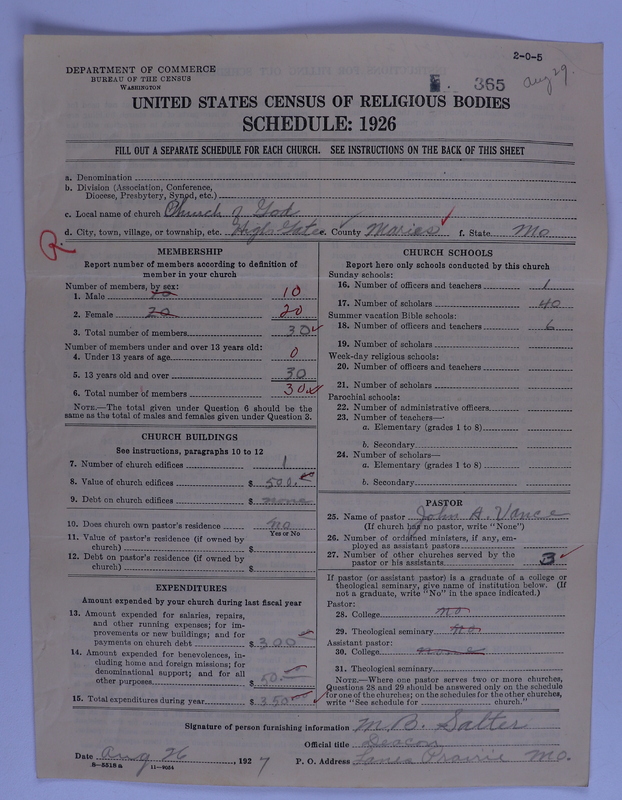 2-0-5
DEPARTMENT OF COMMERCE
BUREAU OF THE CENSUS
WASHINGTON
365
Aug 29.
UNITED STATES CENSUS OF RELIGIOUS BODIES
SCHEDULE: 1926
FILL OUT A SEPARATE SCHEDULE FOR EACH CHURCH. SEE INSTRUCTIONS ON THE BACK OF THIS SHEET
a. Denomination
b. Division (Association, Conference,
Diocese, Presbytery, Synod, etc.)
c. Local name of church Church of God
d. City, town, village, or township, etc. High Gate e. County Maries f. State Mo
R.
MEMBERSHIP
Report number of members according to definition of
member in your church
Number of members, by sex:
1. Male 10
2. Female 20 20
3. Total number of members 30
Number of members under and over 13 years old:
4. Under 13 years of age 0
5. 13 years old and over 30
6. Total number of members 30
NOTE.—The total given under Question 6 should be the
same as the total of males and females given under Question 3.
CHURCH BUILDINGS
See instructions, paragraphs 10 to 12
7. Number of church edifices 1
8. Value of church edifices $ 500.
9. Debt on church edifices $ none
10. Does church own pastor's residence no
Yes or No
11. Value of pastor's residence (if owned by
church) $
12. Debt on pastor's residence (if owned by
church) $
EXPENDITURES
Amount expended by your church during last fiscal year
13. Amount expended for salaries, repairs,
and other running expenses; for im-
provements or new buildings; and for
payments on church debt $ 300
14. Amount expended for benevolences, in-
cluding home and foreign missions; for
denominational support; and for all
other purposes $ 50.
15. Total expenditures during year $ 350
CHURCH SCHOOLS
Report here only schools conducted by this church
Sunday schools:
16. Number of officers and teachers 1
17. Number of scholars 40
Summer vacation Bible schools:
18. Number of officers and teachers 6
19. Number of scholars
Week-day religious schools:
20. Number of officers and teachers
21. Number of scholars
Parochial schools:
22. Number of administrative officers
23. Number of teachers—
a. Elementary (grades 1 to 8)
b. Secondary
24. Number of scholars—
a. Elementary (grades 1 to 8)
b. Secondary
PASTOR
25. Name of pastor John A. Vance
(If church has no pastor, write "None")
26. Number of ordained ministers, if any, em-
ployed as assistant pastors
27. Number of other churches served by the
pastor or his assistants 3
If pastor (or assistant pastor) is a graduate of a college or
theological seminary, give name of institution below. (If
not a graduate, write "No" in the space indicated.)
Pastor:
28. College no
29. Theological seminary no
Assistant pastor:
30. College none
31. Theological seminary
NOTE.—Where one pastor serves two or more churches,
Questions 28 and 29 should be answered only on the schedule
for one of the churches; on the schedules for the other churches,
write "See schedule for church."
Signature of person furnishing information M. B. Salter
Official title Deacon
Date Aug 26, 1927 P. O. Address Prairie Mo.
8-5518a 11-9054